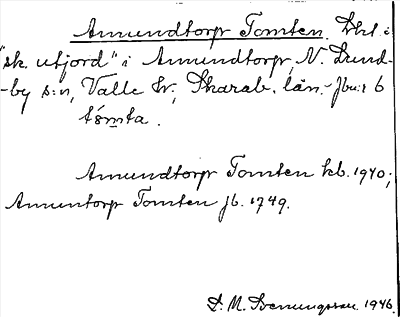 Amundtorp Tomten. Lht i
"sk. utjord" i Amundtorp, N. Lund-
-by s:n, Valle hr., Skarab. län. - Jbu: t 6
tómta.
Amundtorp Tomten kb. 1940;
Amuntorp Tomten jb. 1749.
S. M. Svenungsson. 1946.